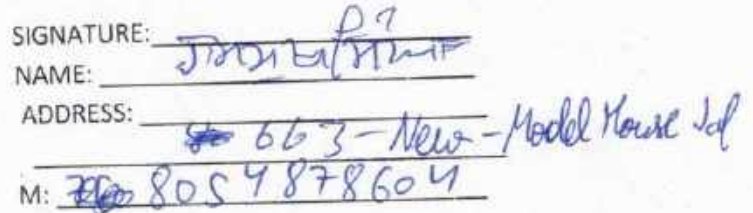 SIGNATURE:
NAME:
ADDRESS:
663 - New - Model House Jal
M: 8054878604